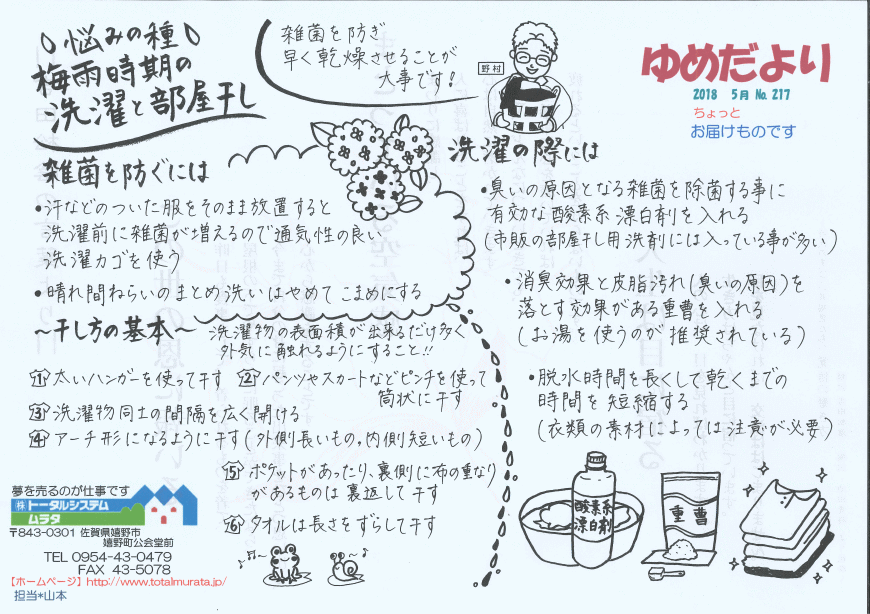 悩みの種
梅雨時期の
洗濯と部屋干し
雑菌を防ぎ
早く乾燥させることが
大事です!
野村
ゆめだより
2018 5月 No. 217
ちょっと
お届けものです
雑菌を防ぐには
•汗などのついた服をそのまま放置すると
洗濯前に雑菌が増えるので通気性の良い
洗濯カゴを使う
•晴れ間ねらいのまとめ洗いはやめて こまめにする
~干し方の基本~
洗濯物の表面積が出来るだけ多く
外気に触れるようにすること!!
1 太いハンガーを使って干す
2 パンツやスカートなどピンチを使って
筒状に干す
3 洗濯物同士の間隔を広く開ける
4 アーチ形になるように干す(外側長いもの,内側短いもの)
5 ポケットがあったり、裏側に布の重なり
があるものは裏返して干す
6 タオルは長さをずらして干す
洗濯の際には
•臭いの原因となる雑菌を除菌する事に
有効な酸素系漂白剤を入れる
(市販の部屋干し用洗剤には入っている事が多い)
•消臭効果と皮脂汚れ(臭いの原因)を
落とす効果がある重曹を入れる
(お湯を使うのが推奨されている)
•脱水時間を長くして乾くまでの
時間を短縮する
(衣類の素材によっては注意が必要)
酸素系
漂白剤
重曹
夢を売るのが仕事です
㈱トータルシステム
ムラタ
〒843-0301 佐賀県嬉野市
嬉野町公会堂前
TEL 0954-43-0479
FAX 43-5078
【ホームページ】http://www.totalmurata.jp/
担当*山本